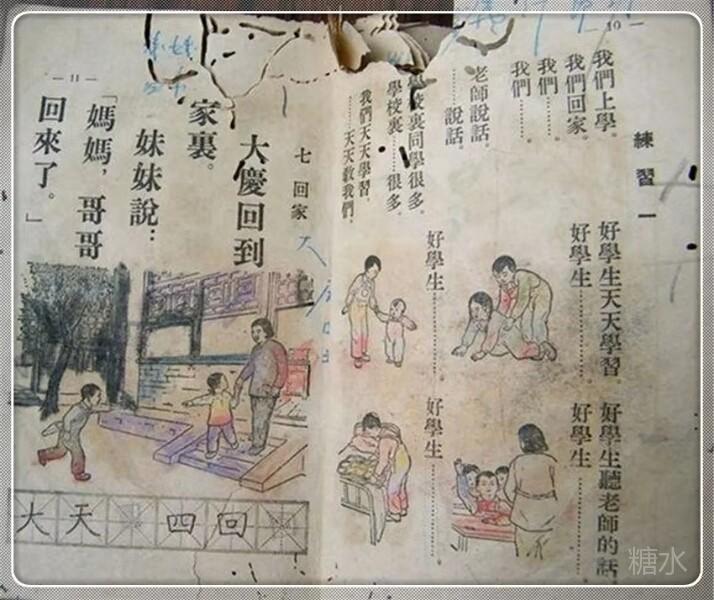 — 10 —
練習一
我們上學。
我們回家。
我們……。
我們……。
老師說話。
……說話。
學校裏同學很多。
學校裏……很多。
我們天天學習。
……天天教我們。
好學生天天學習。
好學生……。
好學生聽老師的話
好學生……。
好學生……。
好學生……。
— 11 —
七 回家
大慶回到
家裏。
妹妹說：
「媽媽，哥哥
回來了。」
大天 四回
糖水